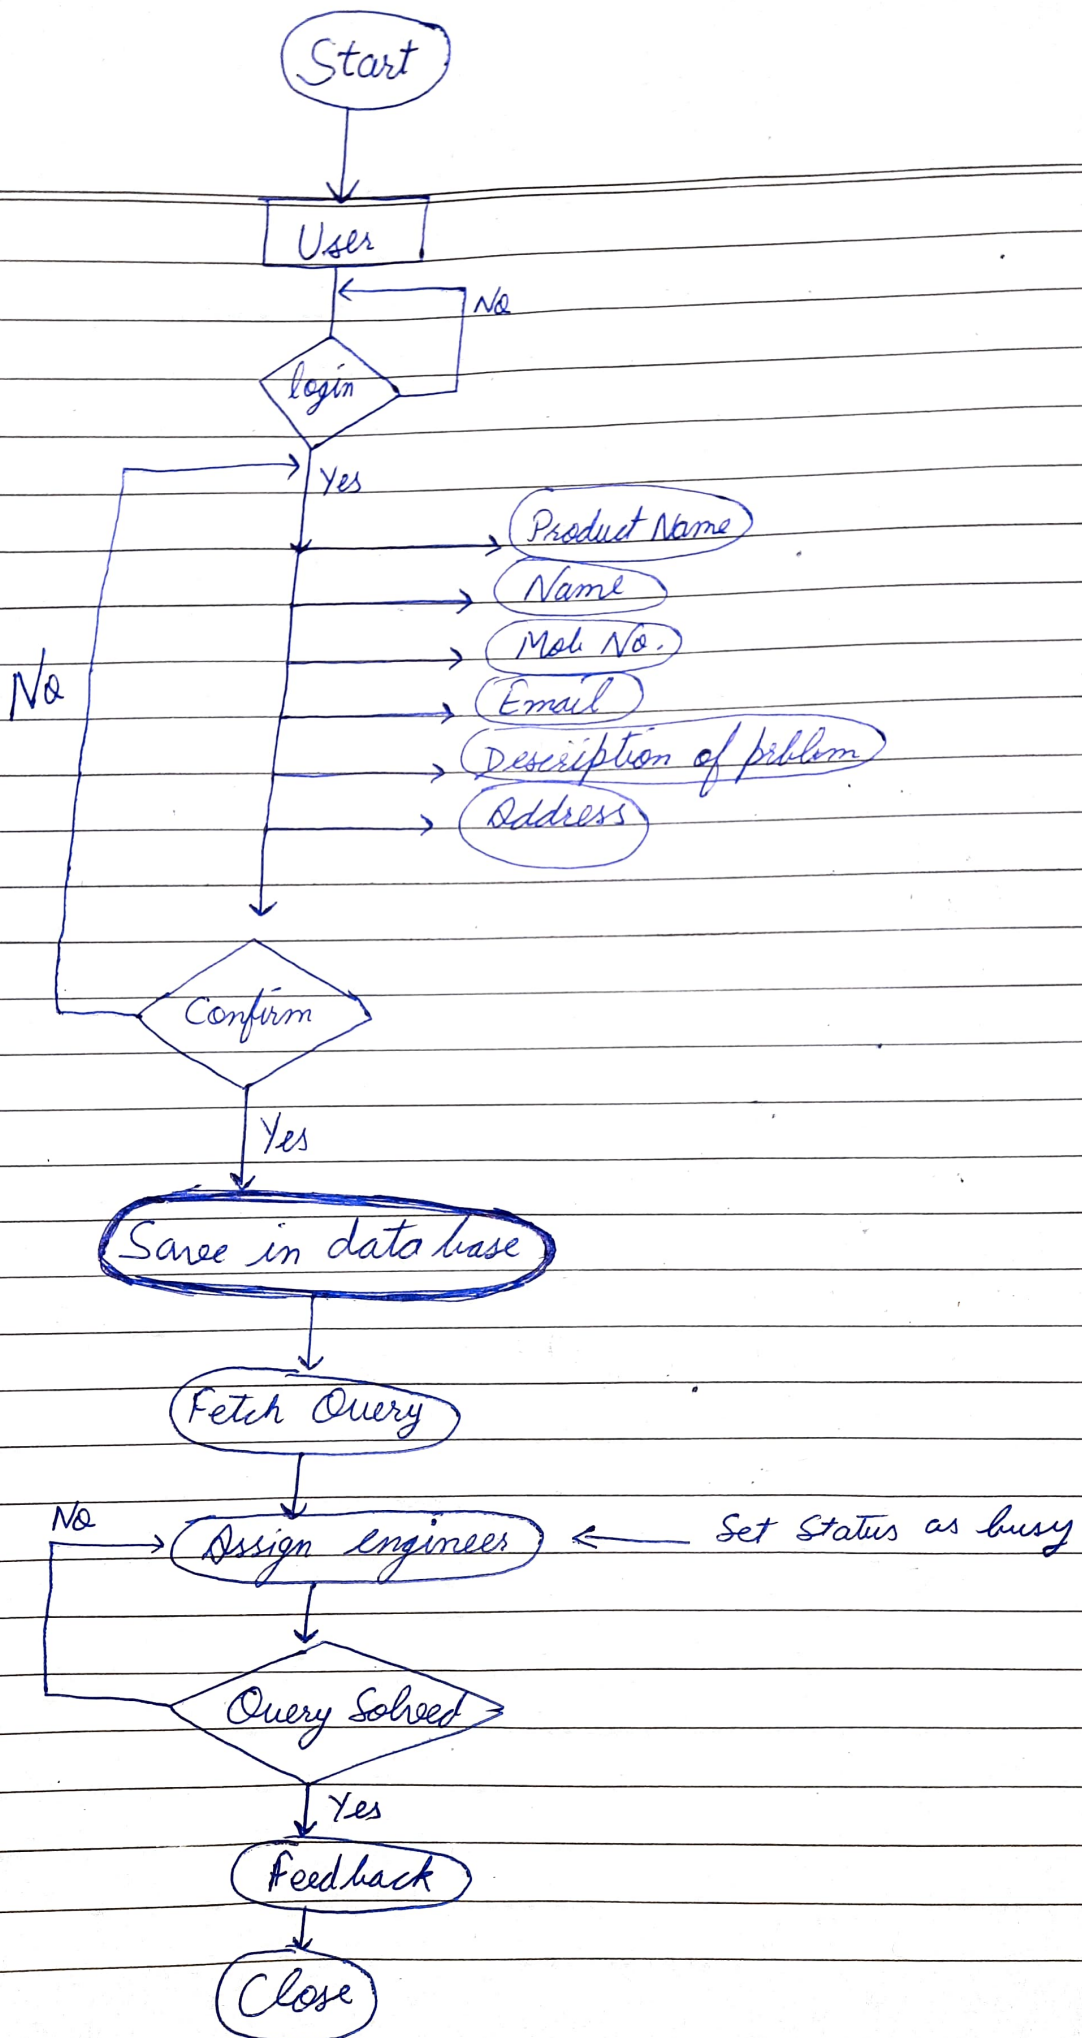 Start
User
No
login
Yes
Product Name
Name
Mob No.
No
Email
Description of prblem
Address
Confirm
Yes
Save in data base
Fetch Query
No
Assign engineer
Set Status as busy
Query Solved
Yes
Feedback
Close